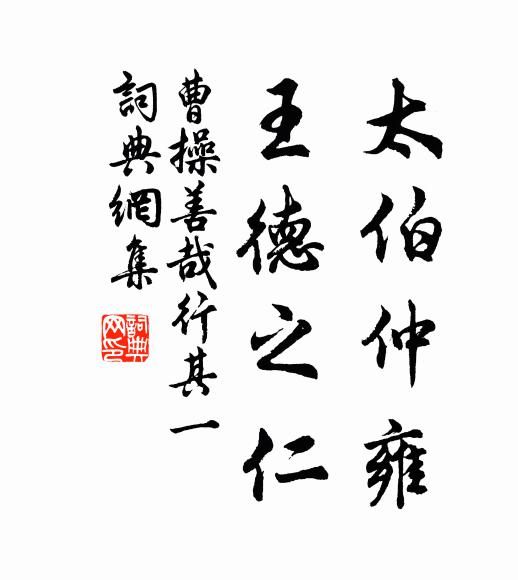 太伯仲雍
王德之仁
曹操善哉行其一
詞典網集
詞典网印